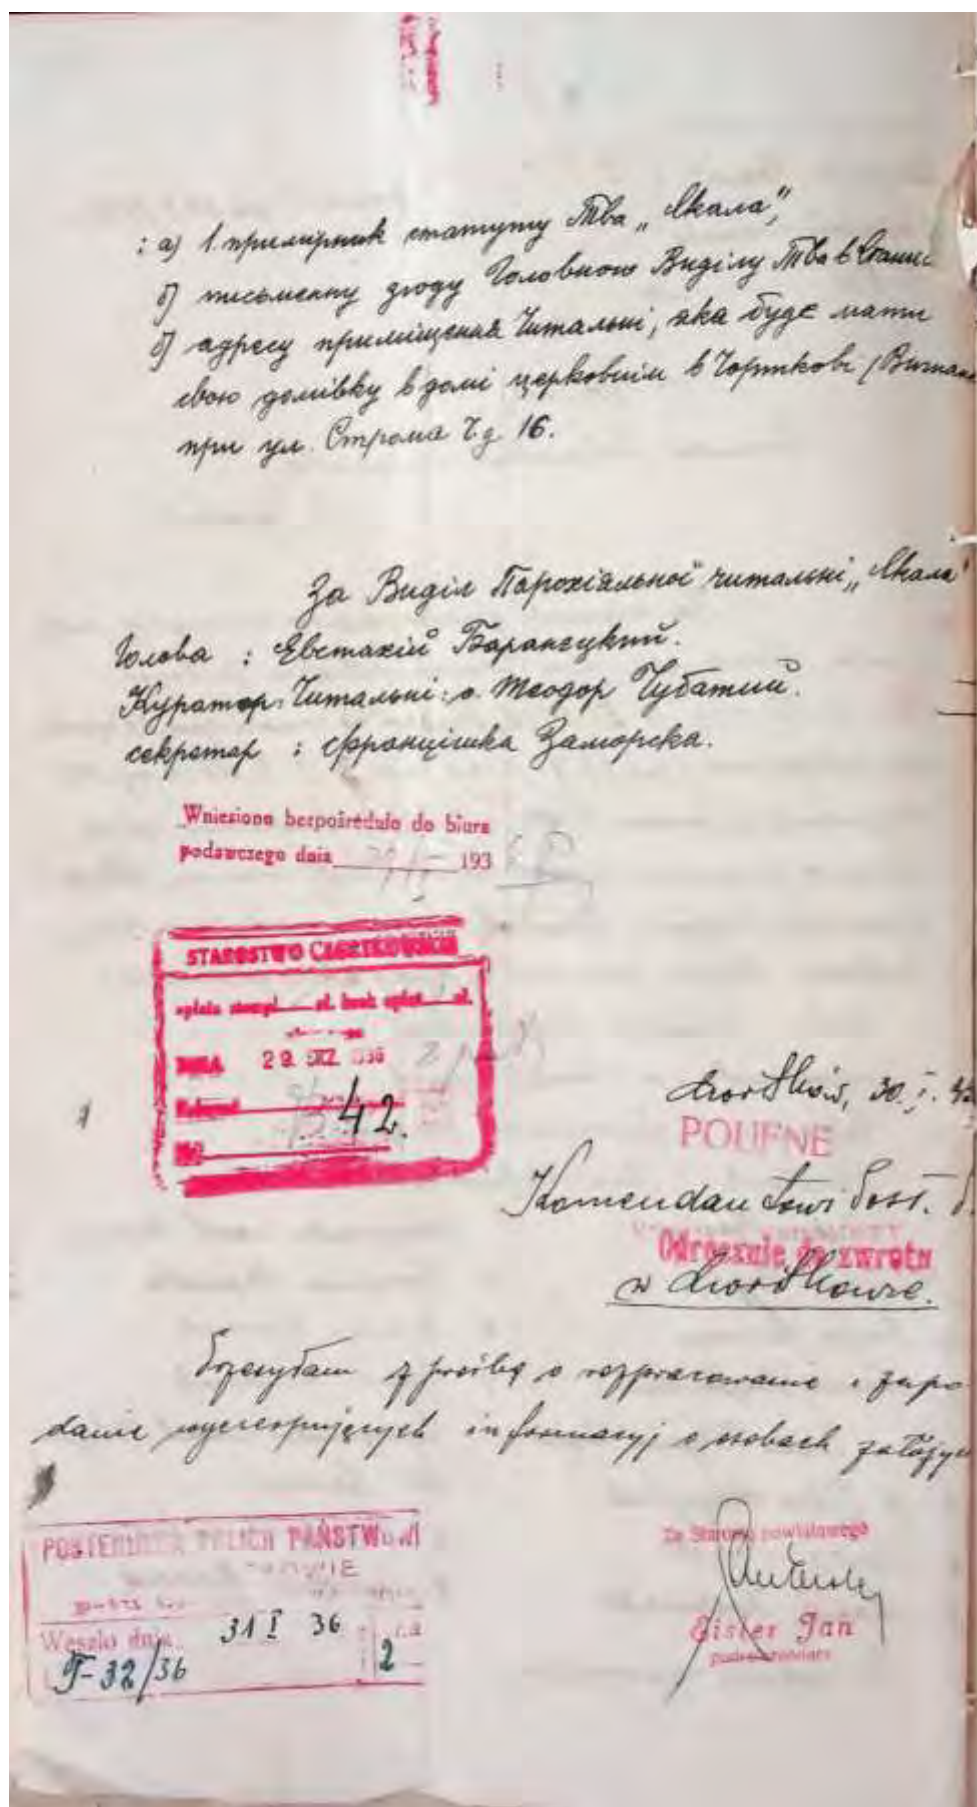 : а) 1. примірник статуту Тва „Скала",
б) письменну згоду Головного Виділу Тва в
в) адресу приміщення Читальні, яка буде мати
свою домівку в домі церковнім в Чорткові (
при ул. Строма Ч.д. 16.
За Виділ Парохіяльної читальні „Скала"
Голова : Евстахій Баранецкий.
Куратор Читальні: о. Теодор Чубатий.
секретар : Францішка Заморска.
Wniesiono bezpośrednio do biura
podawczego dnia 193
STAROSTWO CZORTKOWSKIE
opłata stempl. zł. bezk opłat zł.
DNIA 29. 1936
42.
Czortków, 30. I.
POUFNE
Komendantowi Post.
Odręcznie do zwrotu
w Czortkowie.
Przesyłam z prośbą o rozpracowanie i zapo
danie wyczerpujących informacyj o osobach założyc
POSTERUNEK POLICJI PAŃSTWOWEJ
Weszło dnia 31 I 36
T-32/36 2
Za Starostę powiatowego
Jan